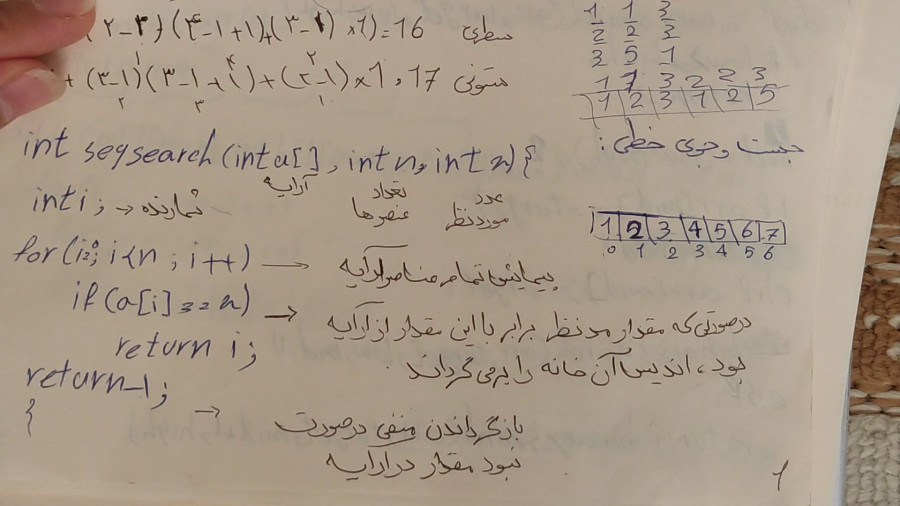 (۲-۳) (۴-۱+۱)+(۳-۱) ×1)=16 سطری
+ (۳-۱)(۳-۱+۱)+(۲-۱)×1 , 17 ستونی
1 1 3
2 2 3
3 5 1
1 1 3 2 2 3
1 2 3 1 2 5
جست و جوی خطی:
int seqsearch (int a[] , int n, int x) {
آرایه تعداد عنصرها عدد مورد نظر
int i ; → شمارنده
1 2 3 4 5 6 7
0 1 2 3 4 5 6
for (i=0; i<n ; i++) → پیمایش تمام عناصر آرایه
if (a[i] == x) → درصورتی که مقدار مد نظر برابر با این مقدار از آرایه
return i; بود، اندیس آن خانه را برمی گرداند
return -1;
{ → بازگرداندن منفی درصورت
نبود مقدار در آرایه
1